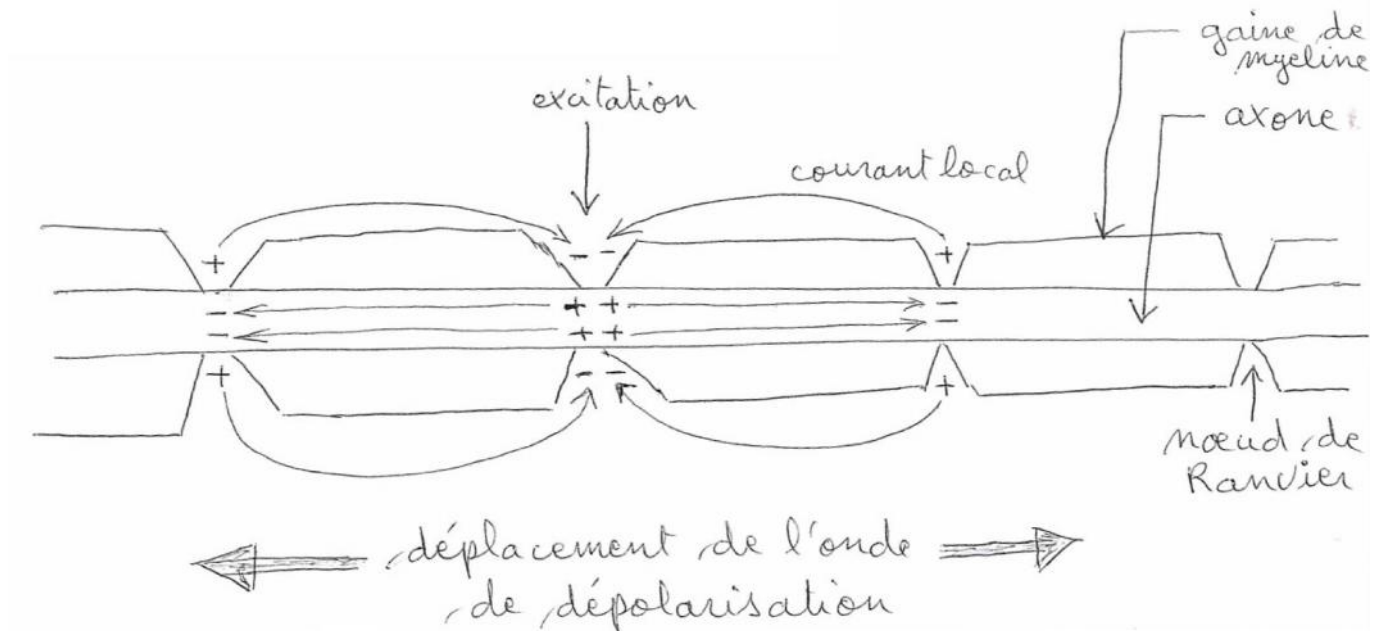 gaine de
myeline
excitation
axone
courant local
+ - - +
- + + -
- + + -
+ - - +
nœud de
Ranvier
déplacement de l'onde
de dépolarisation